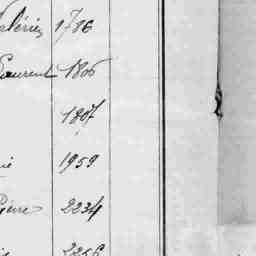 Valérie 1786
Laurent 1806
1807
1959
Pierre 2234
2256